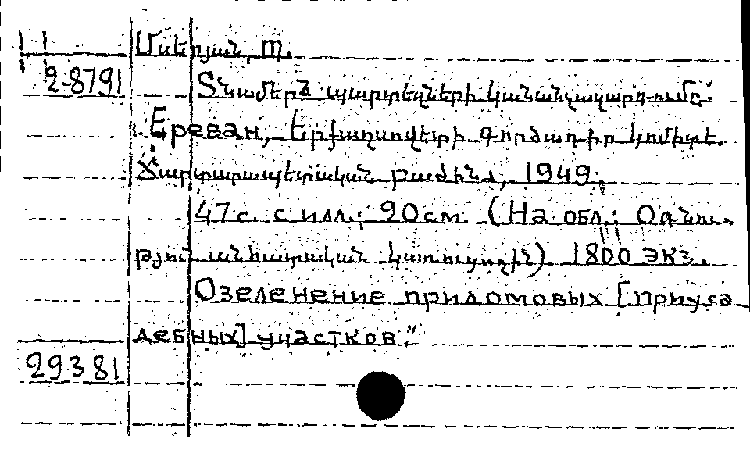 Մսերյան, Տ.
2-8791
Տնամերձ պարտեզների կանաչապարդումը.
Ереван, Երքաղսովետի գործադիր կոմիտե.
Ճարտարապետական բաժին, 1949.
47 с. с илл.; 20 см. (На обл.: Օգնու-
թյուն անհատական կառուցողին) 1800 экз.
Озеленение придомовых [приуса
дебных] участков."
29381